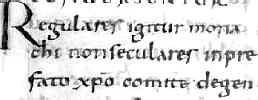 Regulares igitur mona
chi non seculares in pre
fato xp̄o comite degen